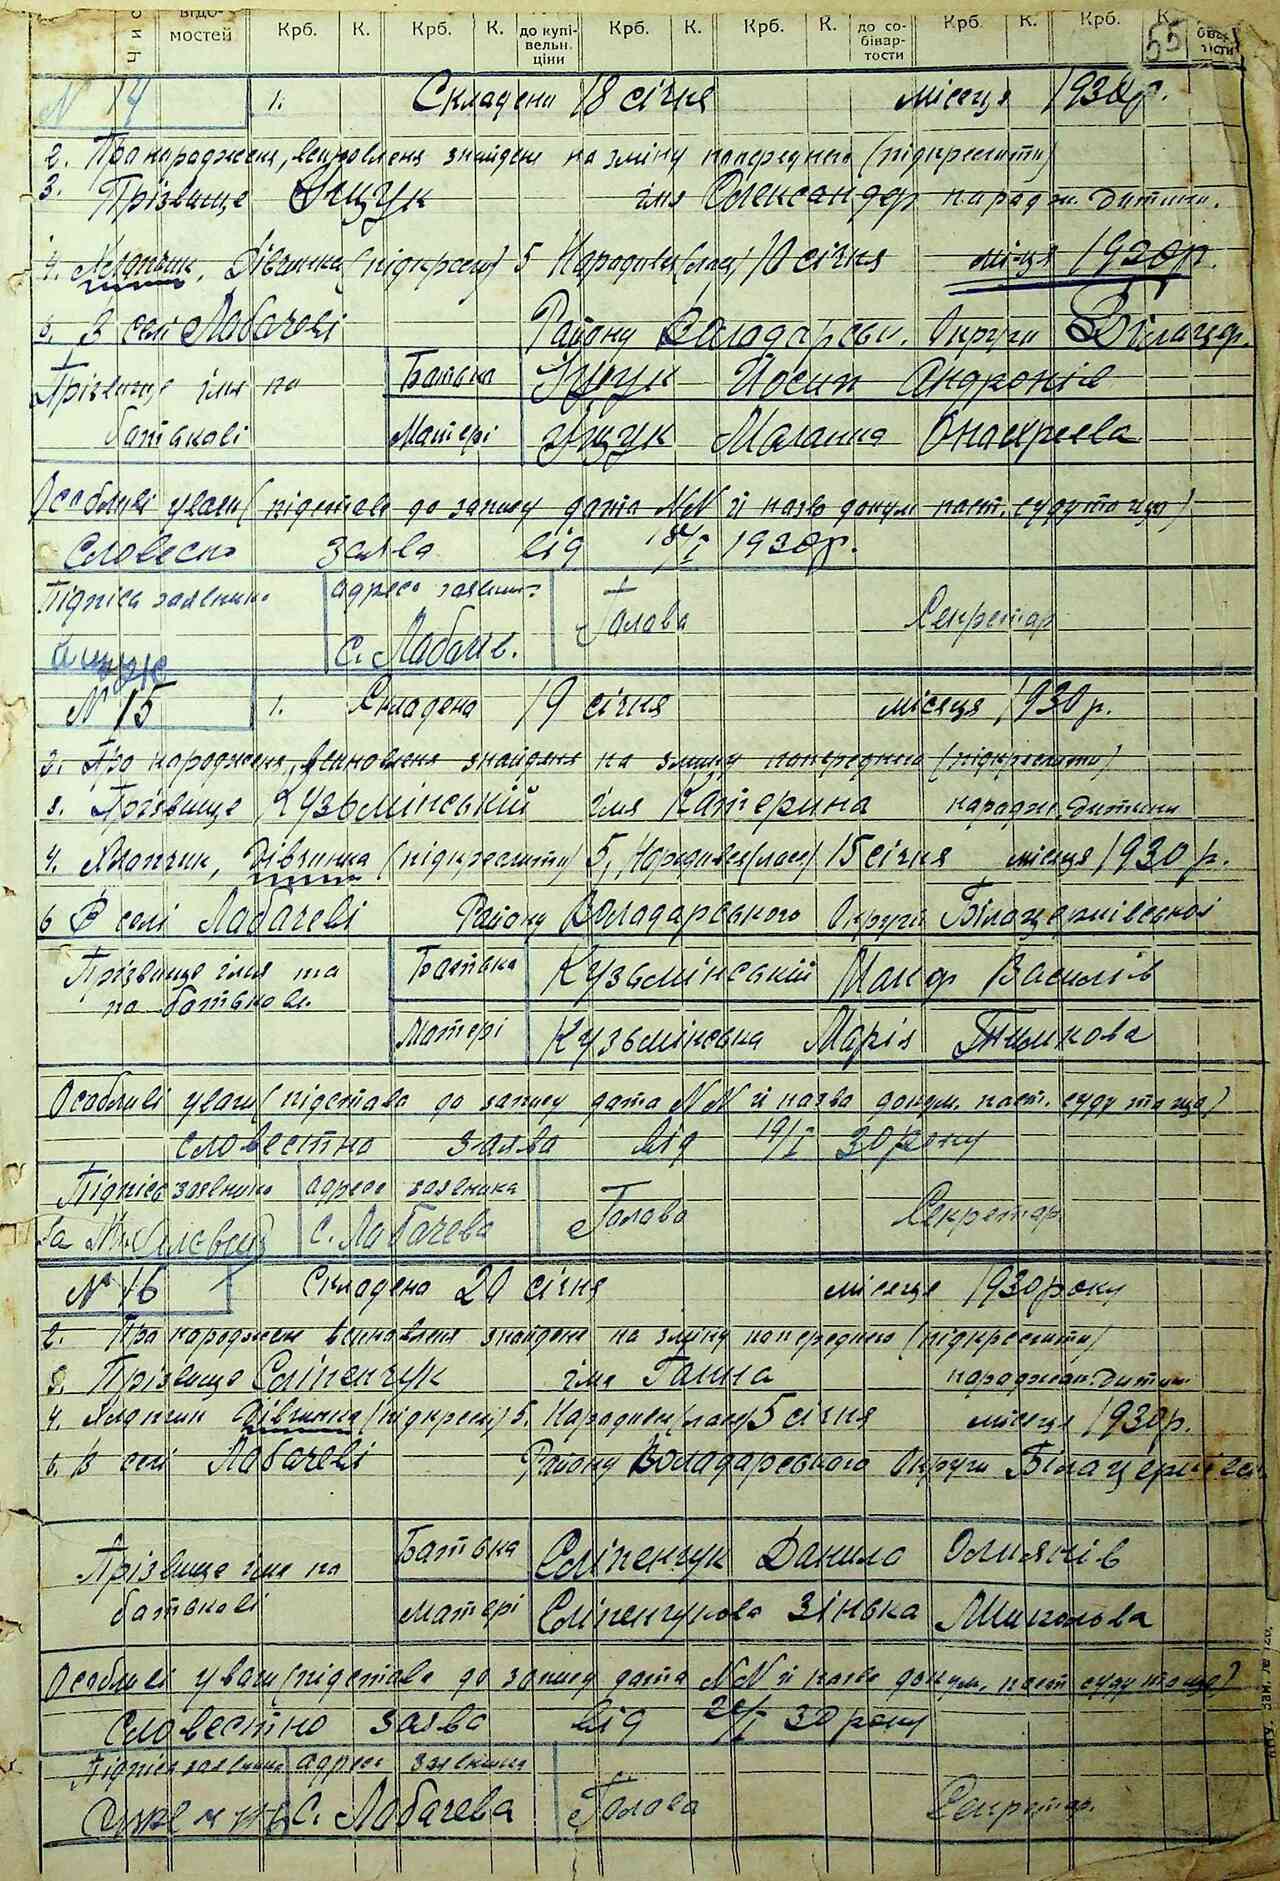 мостей Крб. К. Крб. К. до купі- вельн. ціни Крб. К. Крб. К. до со- бівар- тости Крб. К. Крб. К. 55
N 14 1. Складена 18 січня місеця 1930р.
2. Про народженя, знайдене на зміну попереднього (підкреслити)
3. Прізвище Іщук імя Олександр народж. дитини.
4. Хлопчик, Дівчинка (підкресли) 5 Народився(лась) 10 січня місця 1930р.
6. В селі Лабачеві Району Володарськ. Округи Білоцер.
Прізвище імя по Батька Іщук Йосип Андронів
батькові Матері Іщук Маланка
Особливі уваги (підстава до запису дата NN й назва докум пост. суду та що)
Словесна заява від 18/I 1930р.
Підпісь заявника адреса заявник. Голова Секретар
с. Лабачів.
N 15 1. Складена 19 січня місяця 1930р.
2. Про народженя, всиновленя знайденя на зміну попереднього (підкреслити)
3. Прізвище Кузьмінський імя Катерина народж. дитини
4. Хлопчик, Дівчинка (підкреслити) 5. Народився(лась) 15 січня місяця 1930р.
6 В селі Лабачеві Району Володарського Округи Білоцерківської
Прізвище імя та Батька Кузьмінський Макар Василів
по батькові. Матері Кузьмінська Марія Тимкова
Особливі уваги (підстава до запису дата NN й назва докум. пост. суду та що)
словестна заява від 19/I 30 року
Підпісь заявника адреса заявника Голова Секретар
за с. Лабачева
N 16 1 Складена 20 січня місеця 1930 року
2. Про народжене всиновленя знайдене на зміну попереднего (підкреслити)
3. Прізвище Сліпенчук імя Ганна народжен. дитин
4. Хлопчик Дівчинка (підкресл) 5. Народився(лась) 5 січня місяця 1930р.
6. В селі Лабачеві Району Володарського Округи Білоцерківськ
Прізвище імя по Батька Сліпенчук Данило
батькові Матері Сліпенчукова Зінька Миколова
Особливі уваги (підстава до запису дата NN й назва докум. пост суду та що)
Словестно заява від 20/I 30 року
Підпісь заявника адреса заявника
с. Лабачева Голова Секретар.